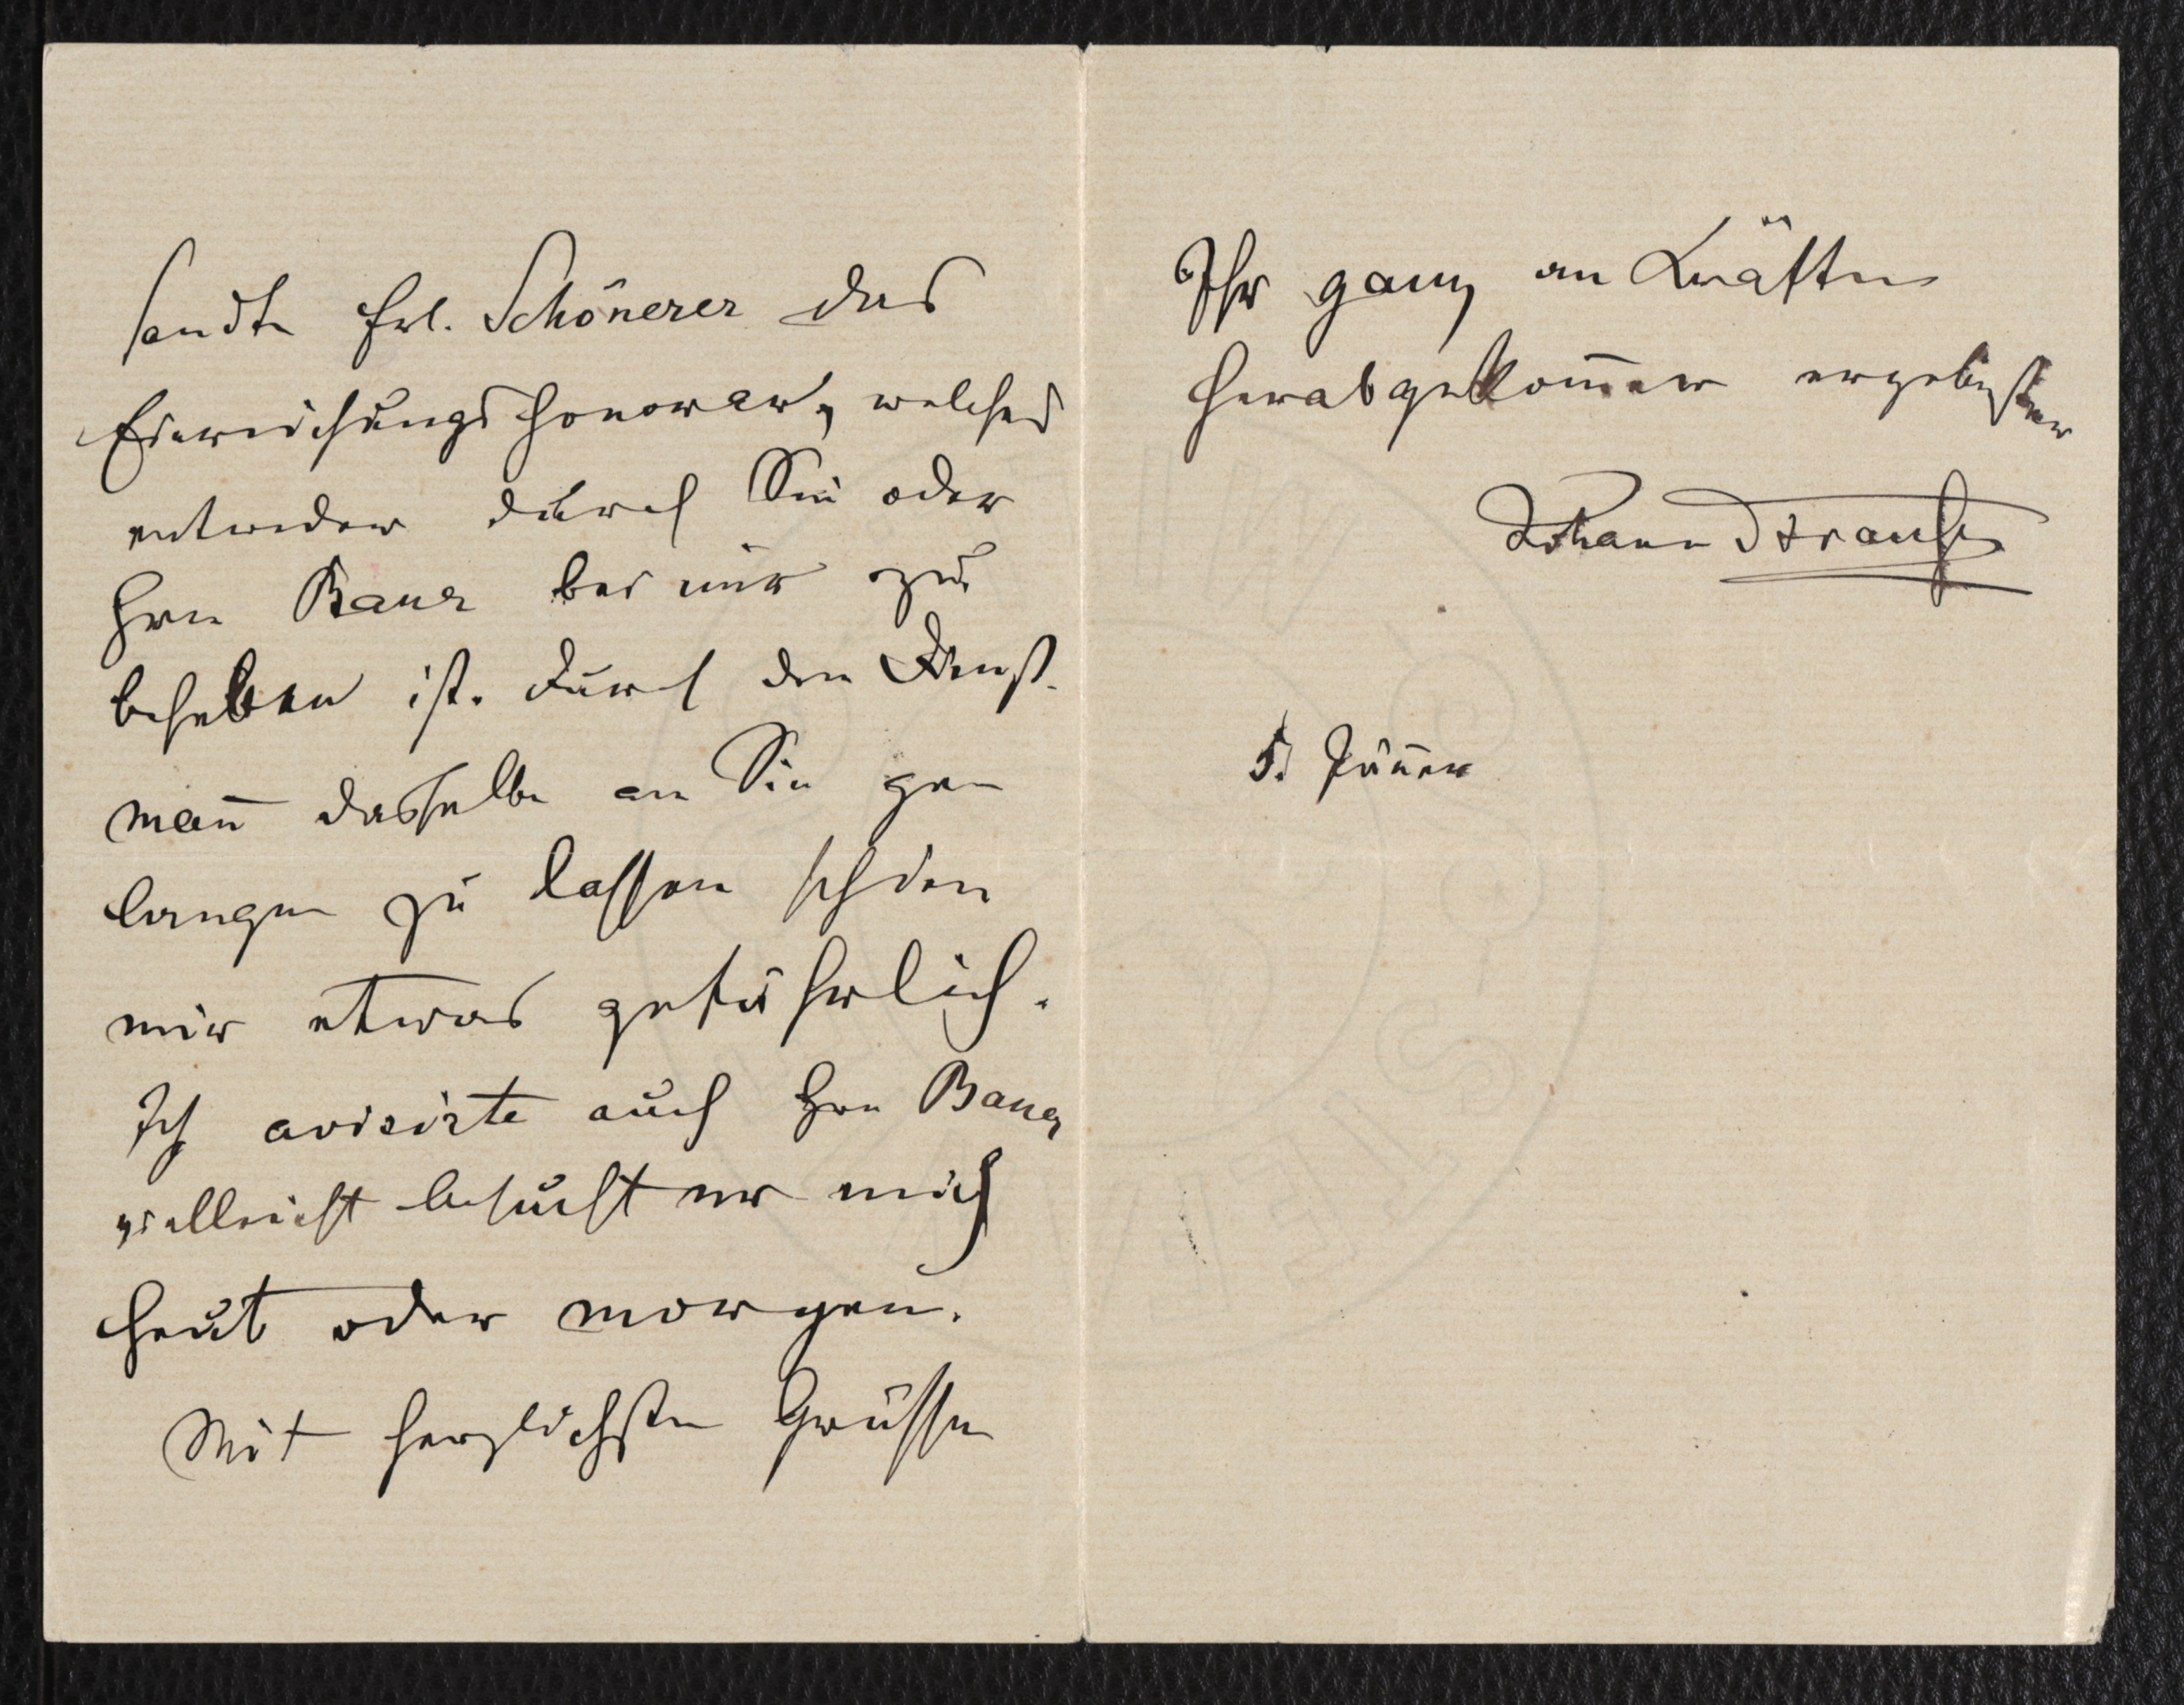 sandte Frl. Schönerer das
Einreichungshonorar, welches
entweder durch Sie oder
Hrn Bauer bei mir zu
beheben ist. Durch den Dienst-
man̄ dasselbe an Sie ge-
langen zu lassen schien
mir etwas gefährlich.
Ich avisirte auch Hrn Bauer
vielleicht besucht er mich
heut oder morgen.
Mit herzlichsten Grüssen
Ihr ganz an Kräften
herabgekom̄ener ergebenster
Johann Strauss
5. Jän̄er